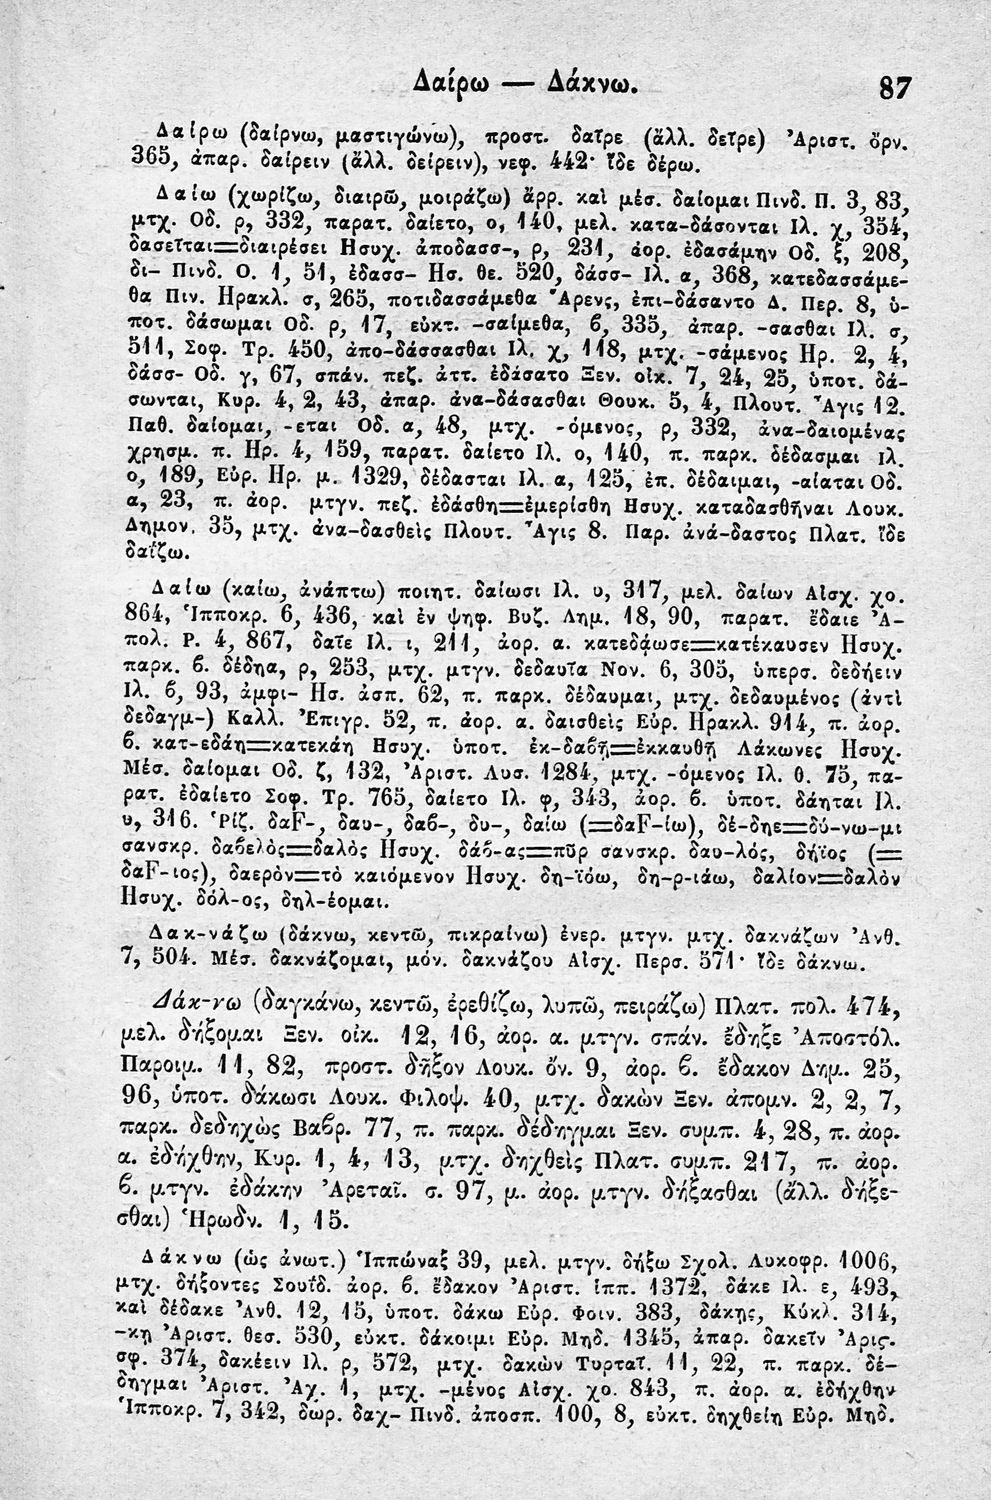 Δαίρω — Δάκνω. 87
Δαίρω (δαίρνω, μαστιγώνω), προστ. δαῖρε (ἄλλ. δεῖρε) Ἀριστ. ὄρν.
365, ἀπαρ. δαίρειν (ἄλλ. δείρειν), νεφ. 442· ἴδε δέρω.
Δαίω (χωρίζω, διαιρῶ, μοιράζω) ἄρρ. καὶ μέσ. δαίομαι Πινδ. Π. 3, 83,
μτχ. Οδ. ρ, 332, παρατ. δαίετο, ο, 140, μελ. κατα-δάσονται Ιλ. χ, 354,
δασεῖται=διαιρέσει Ησυχ. ἀποδασσ-, ρ, 231, ἀορ. ἐδασάμην Οδ. ξ, 208,
δι- Πινδ. Ο. 1, 51, ἐδασσ- Ησ. θε. 520, δάσσ- Ιλ. α, 368, κατεδασσάμε-
θα Πιν. Ηρακλ. σ, 265, ποτιδασσάμεθα Ἄρενς, ἐπι-δάσαντο Δ. Περ. 8, ὑ-
ποτ. δάσωμαι Οδ. ρ, 17, εὐκτ. -σαίμεθα, ϐ, 335, ἀπαρ. -σασθαι Ιλ. σ,
511, Σοφ. Τρ. 450, ἀπο-δάσσασθαι Ιλ. χ, 118, μτχ. -σάμενος Ηρ. 2, 4,
δάσσ- Οδ. γ, 67, σπάν. πεζ. ἀττ. ἐδάσατο Ξεν. οἰκ. 7, 24, 25, ὑποτ. δά-
σωνται, Κυρ. 4, 2, 43, ἀπαρ. ἀνα-δάσασθαι Θουκ. 5, 4, Πλουτ. Ἆγις 12.
Παθ. δαίομαι, -εται Οδ. α, 48, μτχ. -όμενος, ρ, 332, ἀνα-δαιομένας
χρησμ. π. Ηρ. 4, 159, παρατ. δαίετο Ιλ. ο, 140, π. παρκ. δέδασμαι Ιλ.
ο, 189, Εὐρ. Ηρ. μ. 1329, δέδασται Ιλ. α, 125, ἐπ. δέδαιμαι, -αίαται Οδ.
α, 23, π. ἀορ. μτγν. πεζ. ἐδάσθη=ἐμερίσθη Ησυχ. καταδασθῆναι Λουκ.
Δημον. 35, μτχ. ἀνα-δασθεὶς Πλουτ. Ἆγις 8. Παρ. ἀνά-δαστος Πλατ. ἴδε
δαΐζω.
Δαίω (καίω, ἀνάπτω) ποιητ. δαίωσι Ιλ. υ, 317, μελ. δαίων Αἰσχ. χο.
864, Ἱπποκρ. 6, 436, καὶ ἐν ψηφ. Βυζ. Δημ. 18, 90, παρατ. ἔδαιε Ἀ-
πολ. Ρ. 4, 867, δαῖε Ιλ. ι, 211, ἀορ. α. κατεδάωσε=κατέκαυσεν Ησυχ.
παρκ. ϐ. δέδηα, ρ, 253, μτχ. μτγν. δεδαυῖα Νον. 6, 305, ὑπερσ. δεδήειν
Ιλ. ϐ, 93, ἀμφι- Ησ. ἀσπ. 62, π. παρκ. δέδαυμαι, μτχ. δεδαυμένος (ἀντὶ
δεδαγμ-) Καλλ. Ἐπιγρ. 52, π. ἀορ. α. δαισθεὶς Εὐρ. Ηρακλ. 914, π. ἀορ.
ϐ. κατ-εδάη=κατεκάη Ησυχ. ὑποτ. ἐκ-δαϐῇ=ἐκκαυθῇ Λάκωνες Ησυχ.
Μέσ. δαίομαι Οδ. ζ, 132, Ἀριστ. Λυσ. 1284, μτχ. -όμενος Ιλ. θ. 75, πα-
ρατ. ἐδαίετο Σοφ. Τρ. 765, δαίετο Ιλ. φ, 343, ἀορ. ϐ. ὑποτ. δάηται Ιλ.
υ, 316. Ῥίζ. δαF-, δαυ-, δαϐ-, δυ-, δαίω (=δαF-ίω), δέ-δηε=δύ-νω-μι
σανσκρ. δαϐελὸς=δαλὸς Ησυχ. δάϐ-ας=πῦρ σανσκρ. δαυ-λός, δήϊος (=
δαF-ιος), δαερὸν=τὸ καιόμενον Ησυχ. δη-ϊόω, δη-ρ-ιάω, δαλίον=δαλὸν
Ησυχ. δόλ-ος, δηλ-έομαι.
Δακ-νάζω (δάκνω, κεντῶ, πικραίνω) ἐνερ. μτγν. μτχ. δακνάζων Ἀνθ.
7, 504. Μέσ. δακνάζομαι, μόν. δακνάζου Αἰσχ. Περσ. 571· ἴδε δάκνω.
Δάκ-νω (δαγκάνω, κεντῶ, ἐρεθίζω, λυπῶ, πειράζω) Πλατ. πολ. 474,
μελ. δήξομαι Ξεν. οἰκ. 12, 16, ἀορ. α. μτγν. σπάν. ἔδηξε Ἀποστόλ.
Παροιμ. 11, 82, προστ. δῆξον Λουκ. ὄν. 9, ἀορ. ϐ. ἔδακον Δημ. 25,
96, ὑποτ. δάκωσι Λουκ. Φιλοψ. 40, μτχ. δακὼν Ξεν. ἀπομν. 2, 2, 7,
παρκ. δεδηχὼς Βαϐρ. 77, π. παρκ. δέδηγμαι Ξεν. συμπ. 4, 28, π. ἀορ.
α. ἐδήχθην, Κυρ. 1, 4, 13, μτχ. δηχθεὶς Πλατ. συμπ. 217, π. ἀορ.
ϐ. μτγν. ἐδάκην Ἀρεταῖ. σ. 97, μ. ἀορ. μτγν. δήξασθαι (ἄλλ. δήξε-
σθαι) Ἡρωδν. 1, 15.
Δάκνω (ὡς ἀνωτ.) Ἱππώναξ 39, μελ. μτγν. δήξω Σχολ. Λυκοφρ. 1006,
μτχ. δήξοντες Σουΐδ. ἀορ. ϐ. ἔδακον Ἀριστ. ἱππ. 1372, δάκε Ιλ. ε, 493,
καὶ δέδακε Ἀνθ. 12, 15, ὑποτ. δάκω Εὐρ. Φοιν. 383, δάκῃς, Κύκλ. 314,
-κῃ Ἀριστ. θεσ. 530, εὐκτ. δάκοιμι Εὐρ. Μηδ. 1345, ἀπαρ. δακεῖν Ἀρις.
σφ. 374, δακέειν Ιλ. ρ, 572, μτχ. δακὼν Τυρταῖ. 11, 22, π. παρκ. δέ-
δηγμαι Ἀριστ. Ἀχ. 1, μτχ. -μένος Αἰσχ. χο. 843, π. ἀορ. α. ἐδήχθην
Ἱπποκρ. 7, 342, δωρ. δαχ- Πινδ. ἀποσπ. 100, 8, εὐκτ. δηχθείη Εὐρ. Μηδ.